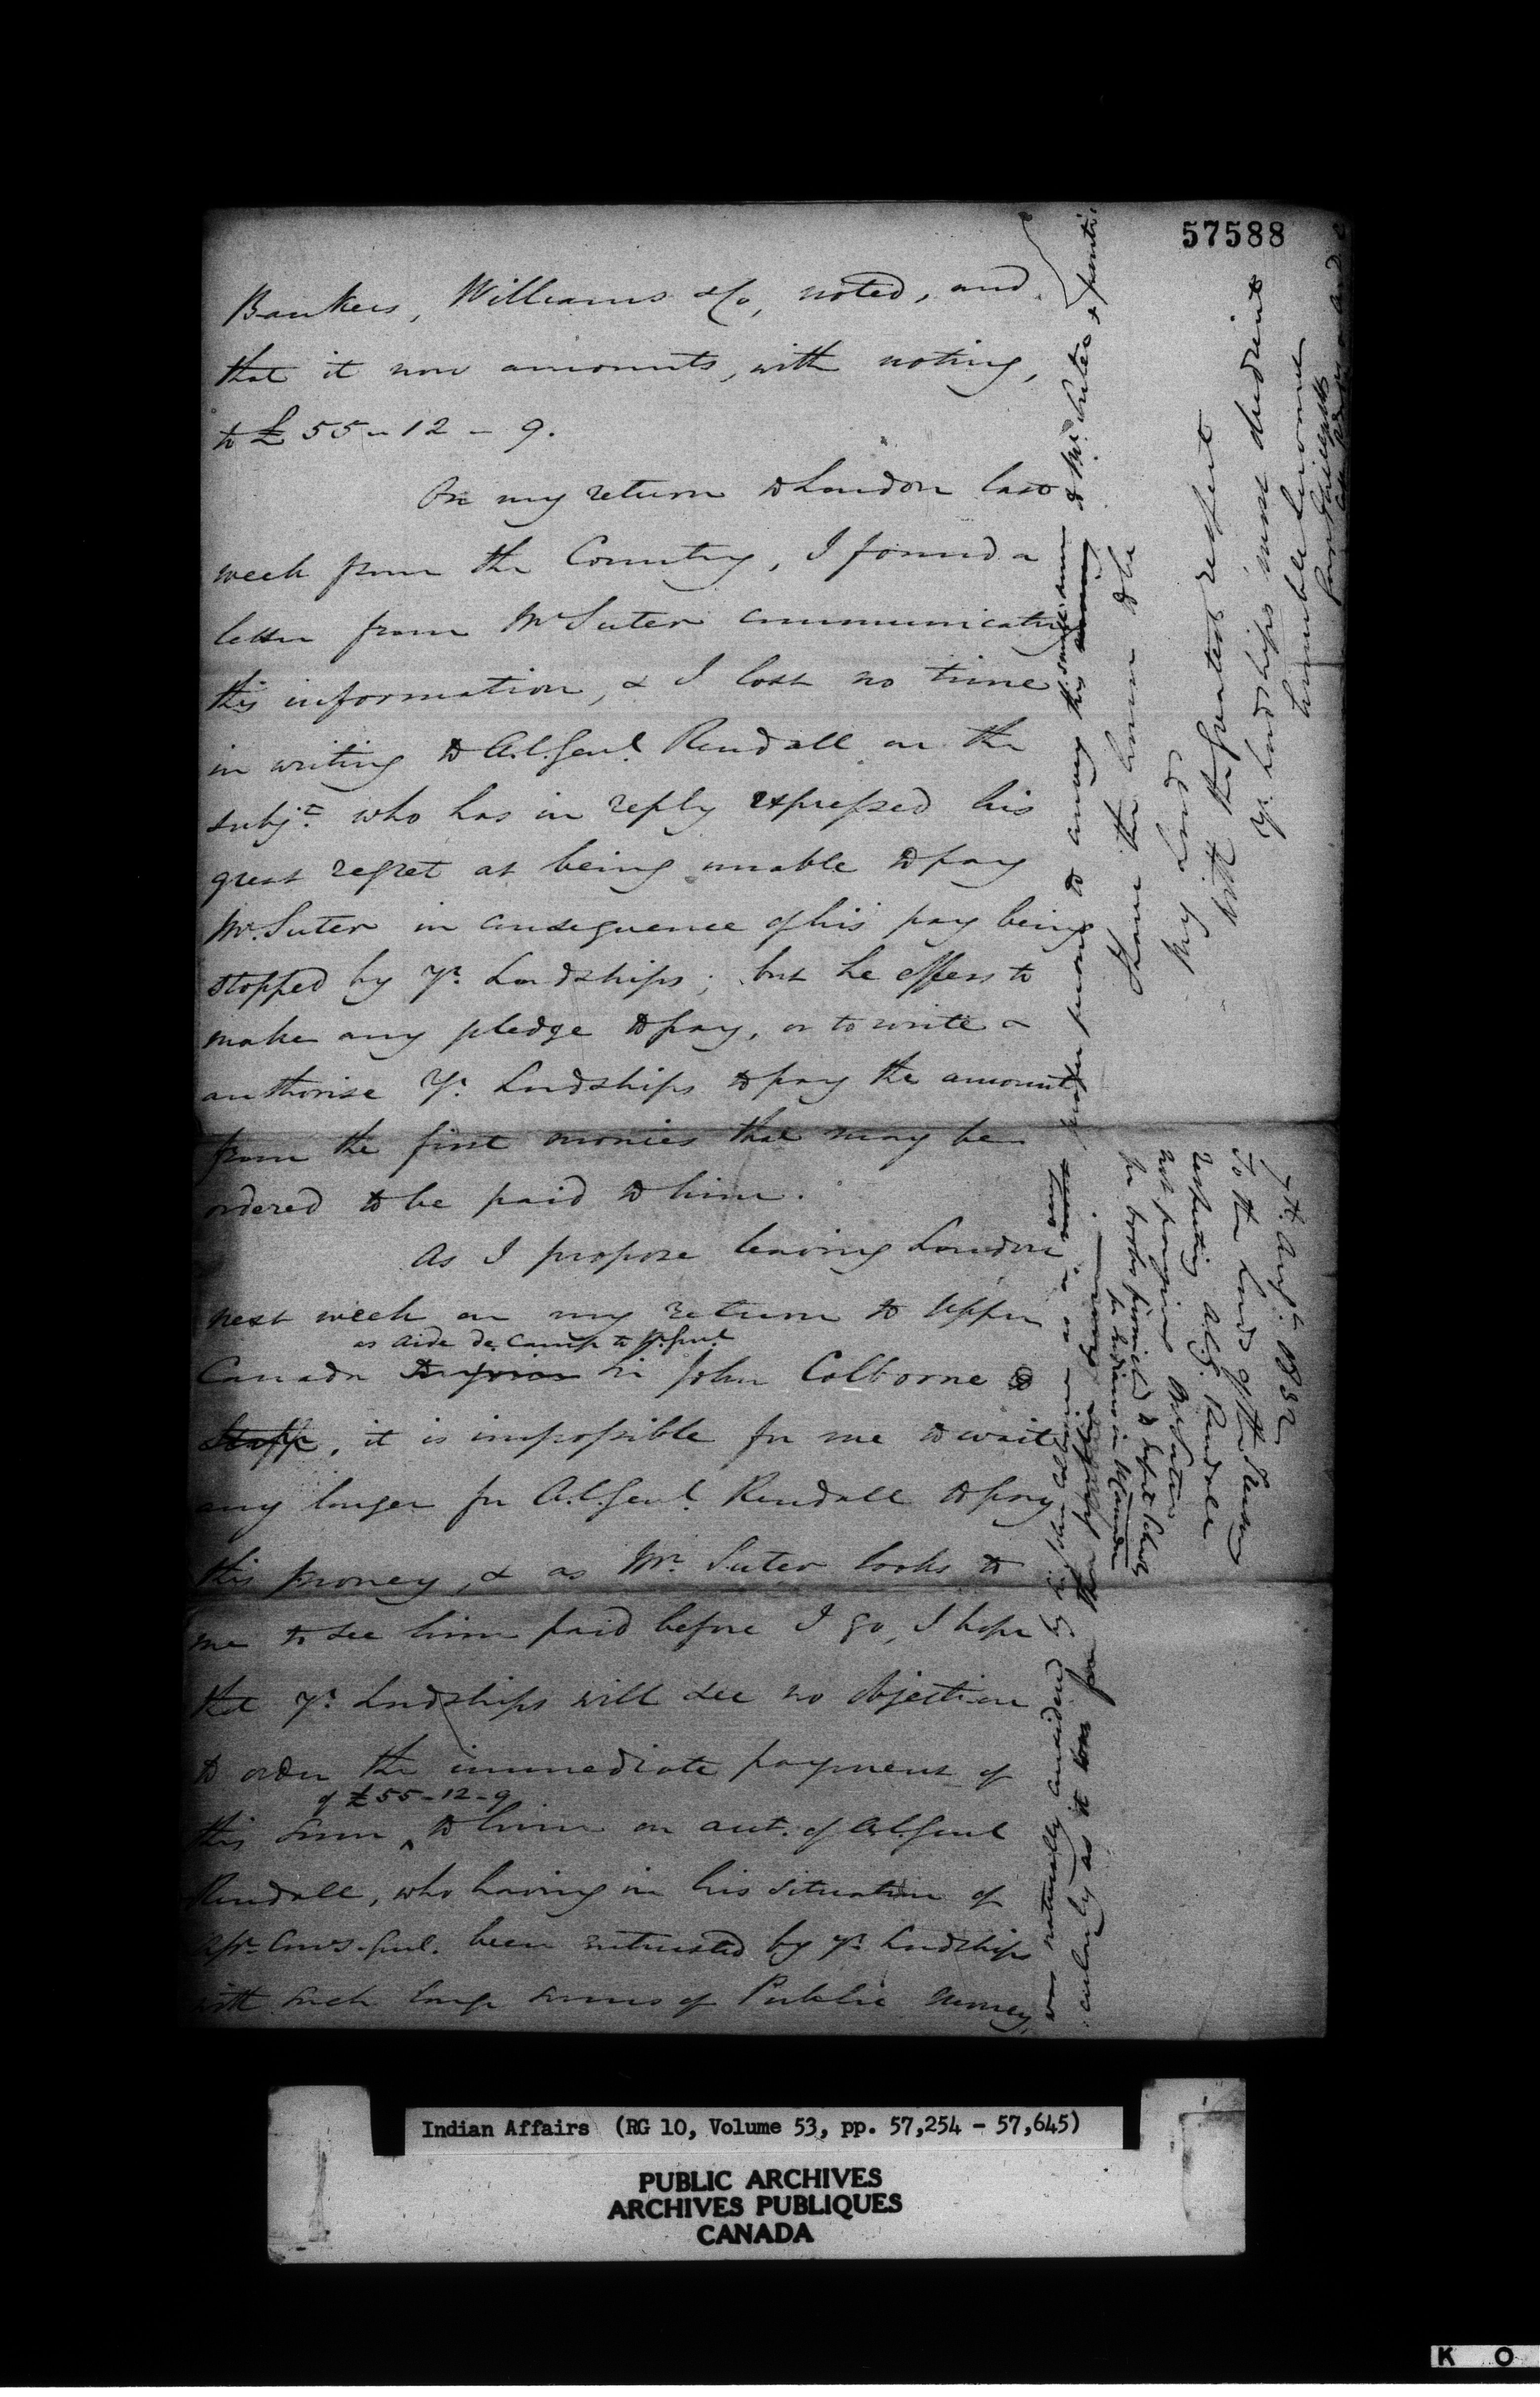 57588
Bankers, Williams & Co, noted, and
that it now amounts, with noting,
to £55-12-9.
On my return to London last
week from the Country, I found a
letter from Mr Suter communicating
this information, & I lost no time
in writing to A.C. Genl. Rendall on the
subjt. who has in reply expressed his
great regret at being unable to pay
Mr. Suter in consequence of his pay being
stopped by Yr. Lordships; but he offers to
make any pledge to pay, or to write &
authorise Yr. Lordships to pay the amount
from the first monies that may be
ordered to be paid to him.
As I propose leaving London
next week on my return to Upper
as Aide de Camp to Mr. Genl.
Canada to join Sir John Colborne
Staff, it is impossible for me to wait
any longer for A.C. Genl. Rendall to pay
this money, & as Mr. Suter looks to
me to see him paid before I go, I hope
that yr. Lordships will see no objection
to order the immediate payment of
of £55-12-9
this sum to him on acct. of A.C. Genl
Rendall, who having in his situation of
Asst. Coms. Genl. been entrusted by yr. Lordships
with such large sums of Public money,
was naturally considered by Sir John Colborne as a very proper person to convey this small sum to Mr. Suter &
as it was for their benefit
I have the honor to be
My Lords
With the greatest respect
Yr. Lordships' most obedient
humble servant
7th. Augt. 1832
To the Lords of the Treasury
respecting A.C.G. Rendall
not paying Mr Suter
for books furnished to Infant Schools
for Indians in U Canada
Indian Affairs (RG 10, Volume 53, pp. 57,254 - 57,645)
PUBLIC ARCHIVES
ARCHIVES PUBLIQUES
CANADA
K O